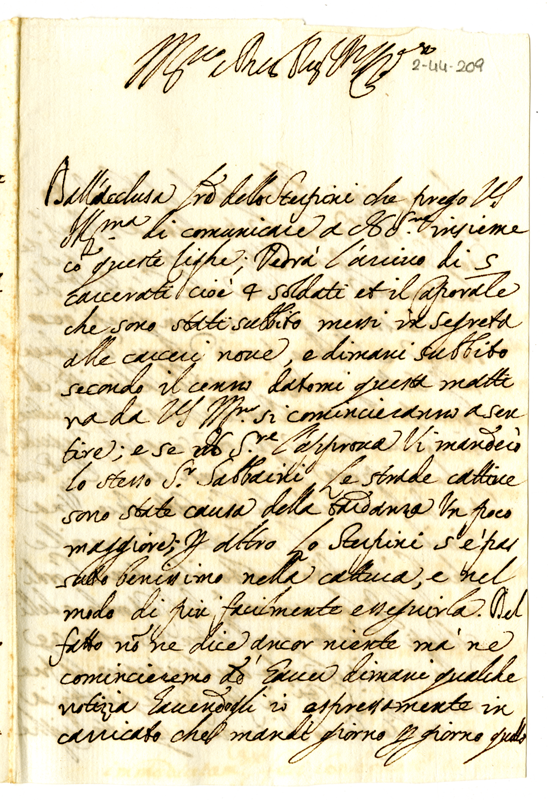 2-44-209
Dall'acclusa l'ra dello Sterpini che prego VS
Ill.ma di comunicare a N.S.re insieme
cō queste righe; Vedrà l'arrivo di 5
carcerati cioè 4 soldati et il Caporale
che sono stati subbito messi in segreta
alle carceri nove, e dimani subbito
secondo il cenno datomi questa matti
na da VS Ill.ma si comincieranno a sen
tire; e se N.S.re l'approva Vi manderò
lo stesso S.r Sabbatini Le strade cattive
sono state causa della tardanza Un poco
maggiore; p altro lo Sterpini s'è par
tato benissimo nella cattura, e nel
modo di più facilmente esseguirla. Del
fatto nō ne dice ancor niente mà ne
comincieremo ad haver dimani qualche
notizia havendogli io espressamente in
carricato che mandi giorno p giorno quello